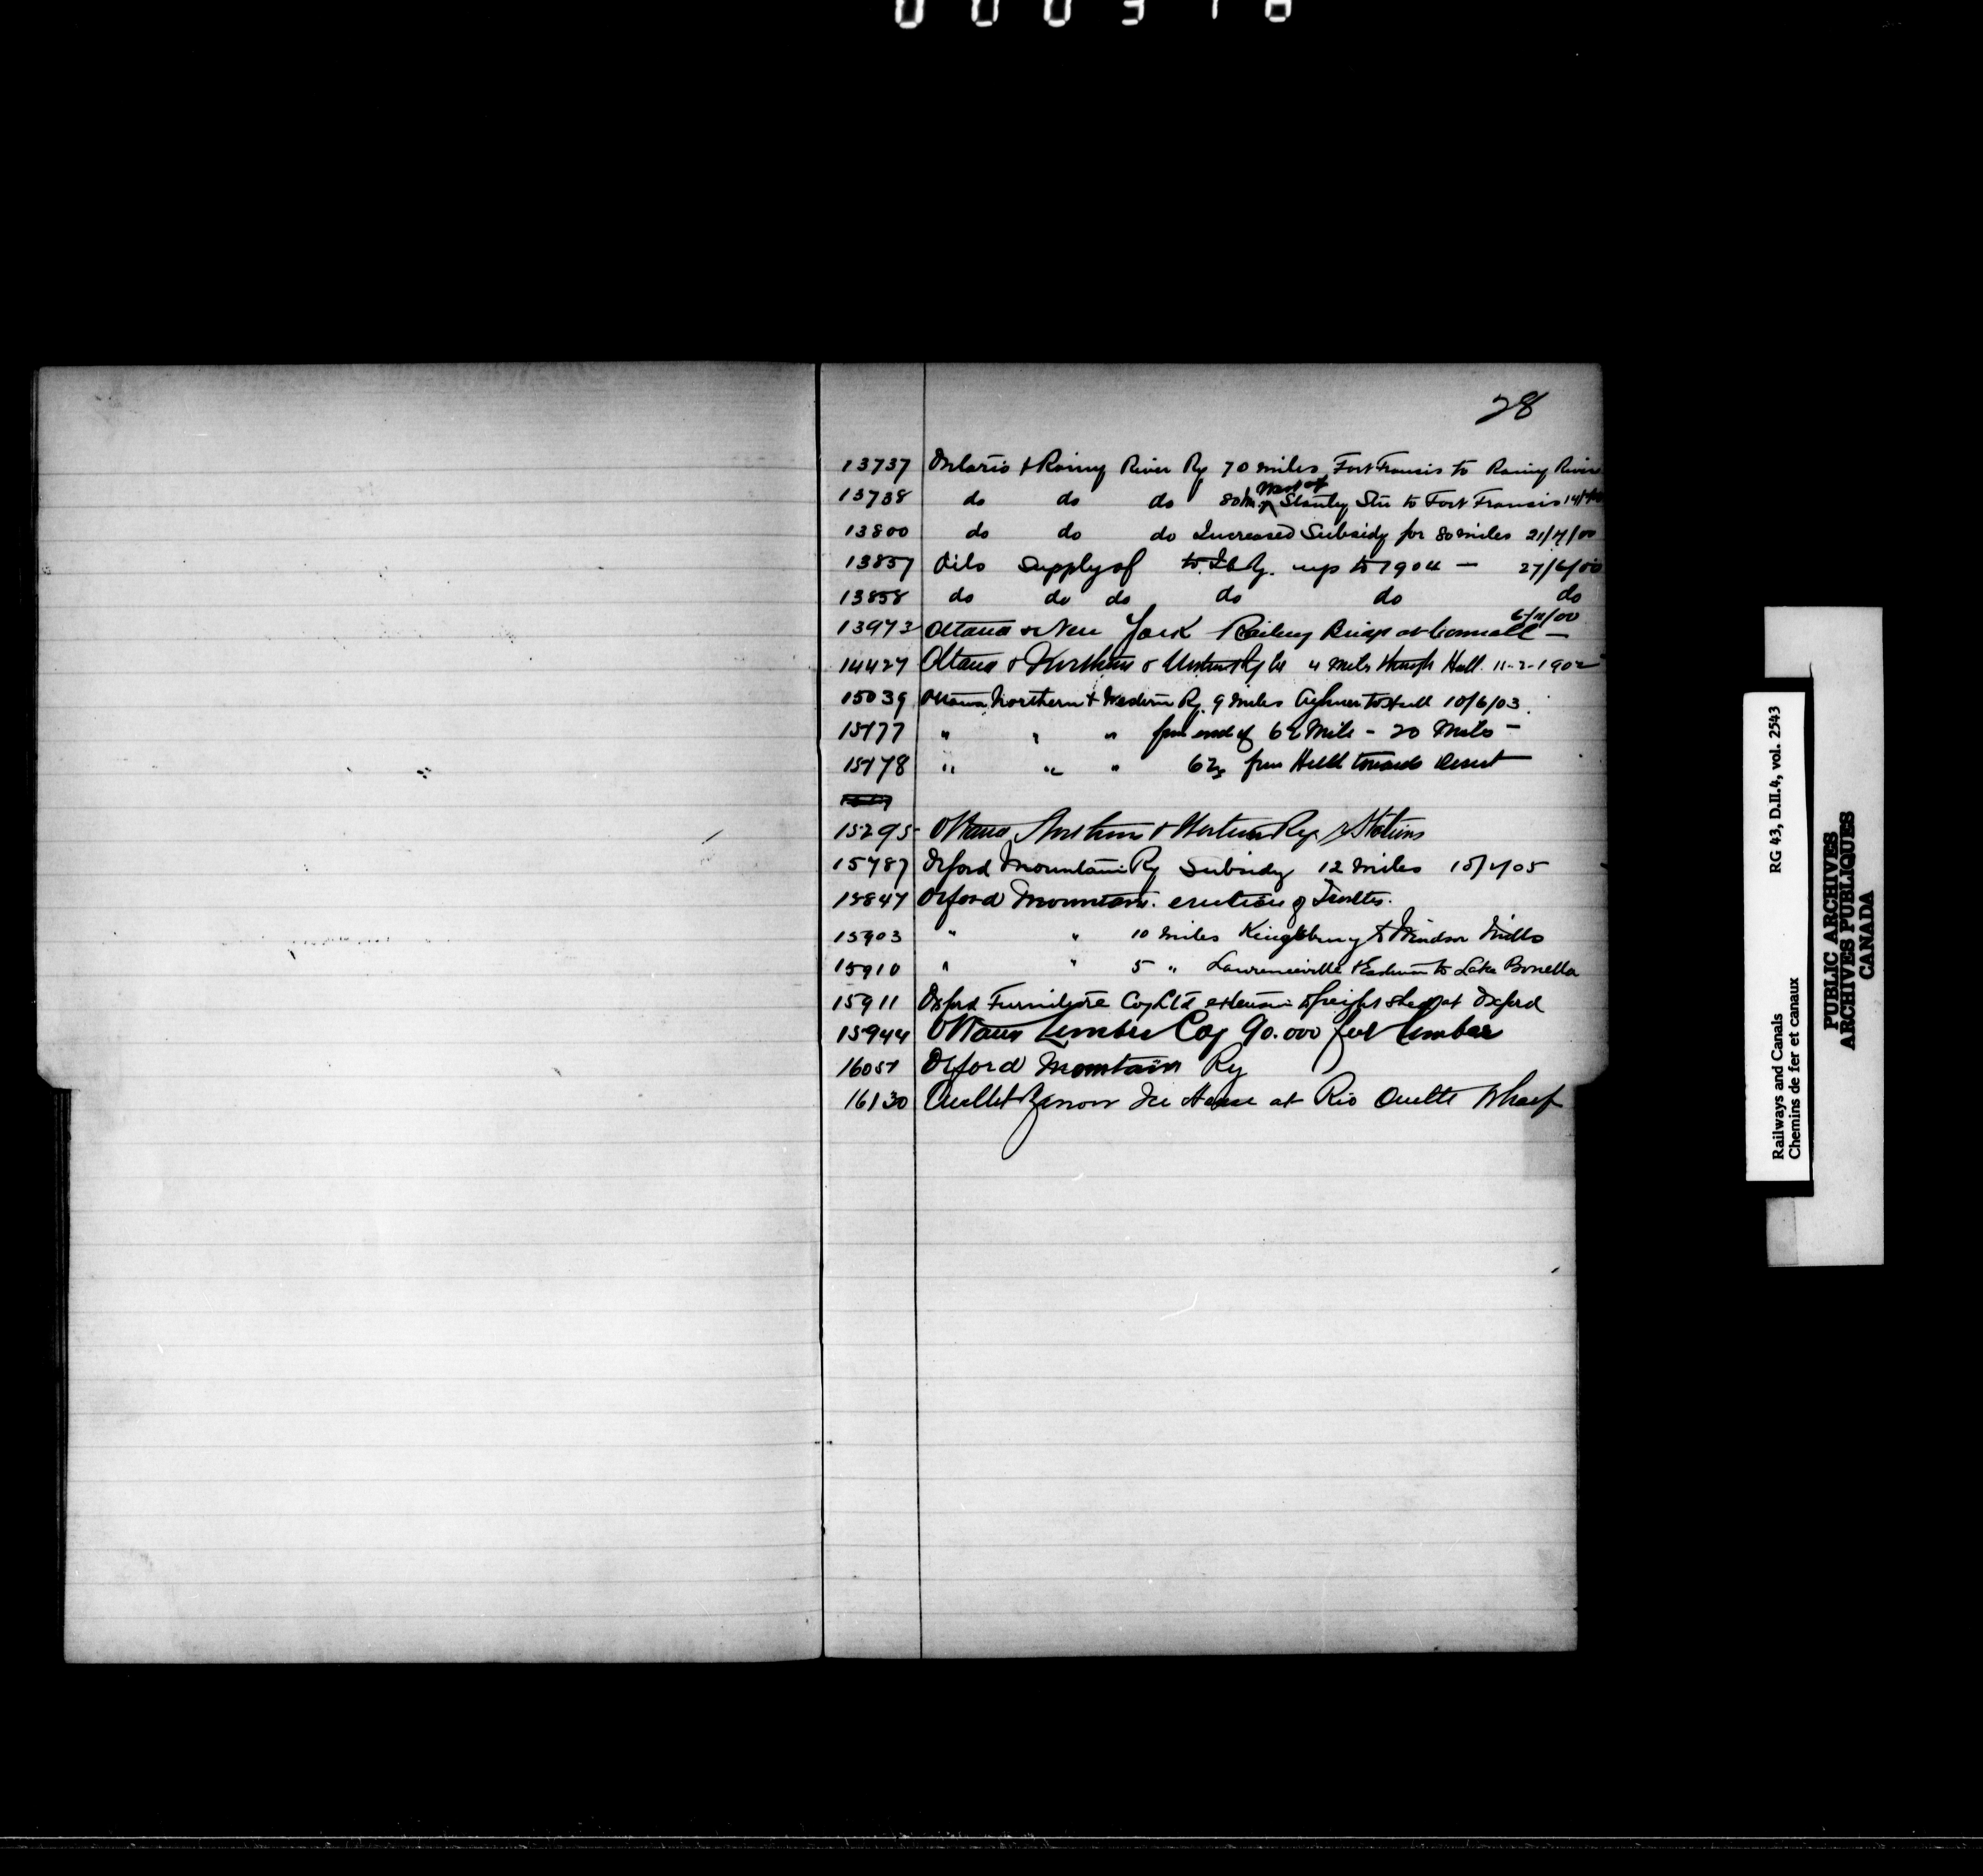 28
13737 Ontario & Rainy River Ry 70 miles Fort Francis to Rainy River
13738 do do do 80 m. West of Stanley Stn to Fort Francis
13800 do do do Increased Subsidy for 80 miles 21/4/00
13857 Oils Supply of to I.C.Ry. up to 1904 — 27/6/00
13858 do do do do do do
6/11/00
13973 Ottawa & New York Railway Bridge at Cornwall —
14427 Ottawa & Northern & Western Ry 4 miles through Hull. 11-2-1902
15039 Ottawa Northern & Western Ry. 9 miles Aylmer to Hull 10/6/03.
15177 " " " from end of 62 Mile - 20 Miles —
15178 " " " 62 from Hull towards Desert
15295 Ottawa Northern & Western Ry Stations
15787 Orford Mountain Ry Subsidy 12 miles
15847 Orford Mountain. erection of Trestles.
15903 " " 10 miles Kingsbury to Windsor Mills
15910 " " 5 " Lawrenceville Eastman to Lake Bonella
15911 Oxford Furniture Coy Ltd extension to freight shed at Oxford
15944 Ottawa Lumber Coy 90.000 feet lumber
16057 Orford Mountain Ry
16130 Ice House at Riv Ouelle Wharf
Railways and Canals RG 43, D.II.4, vol. 2543
Chemins de fer et canaux
PUBLIC ARCHIVES
ARCHIVES PUBLIQUES
CANADA